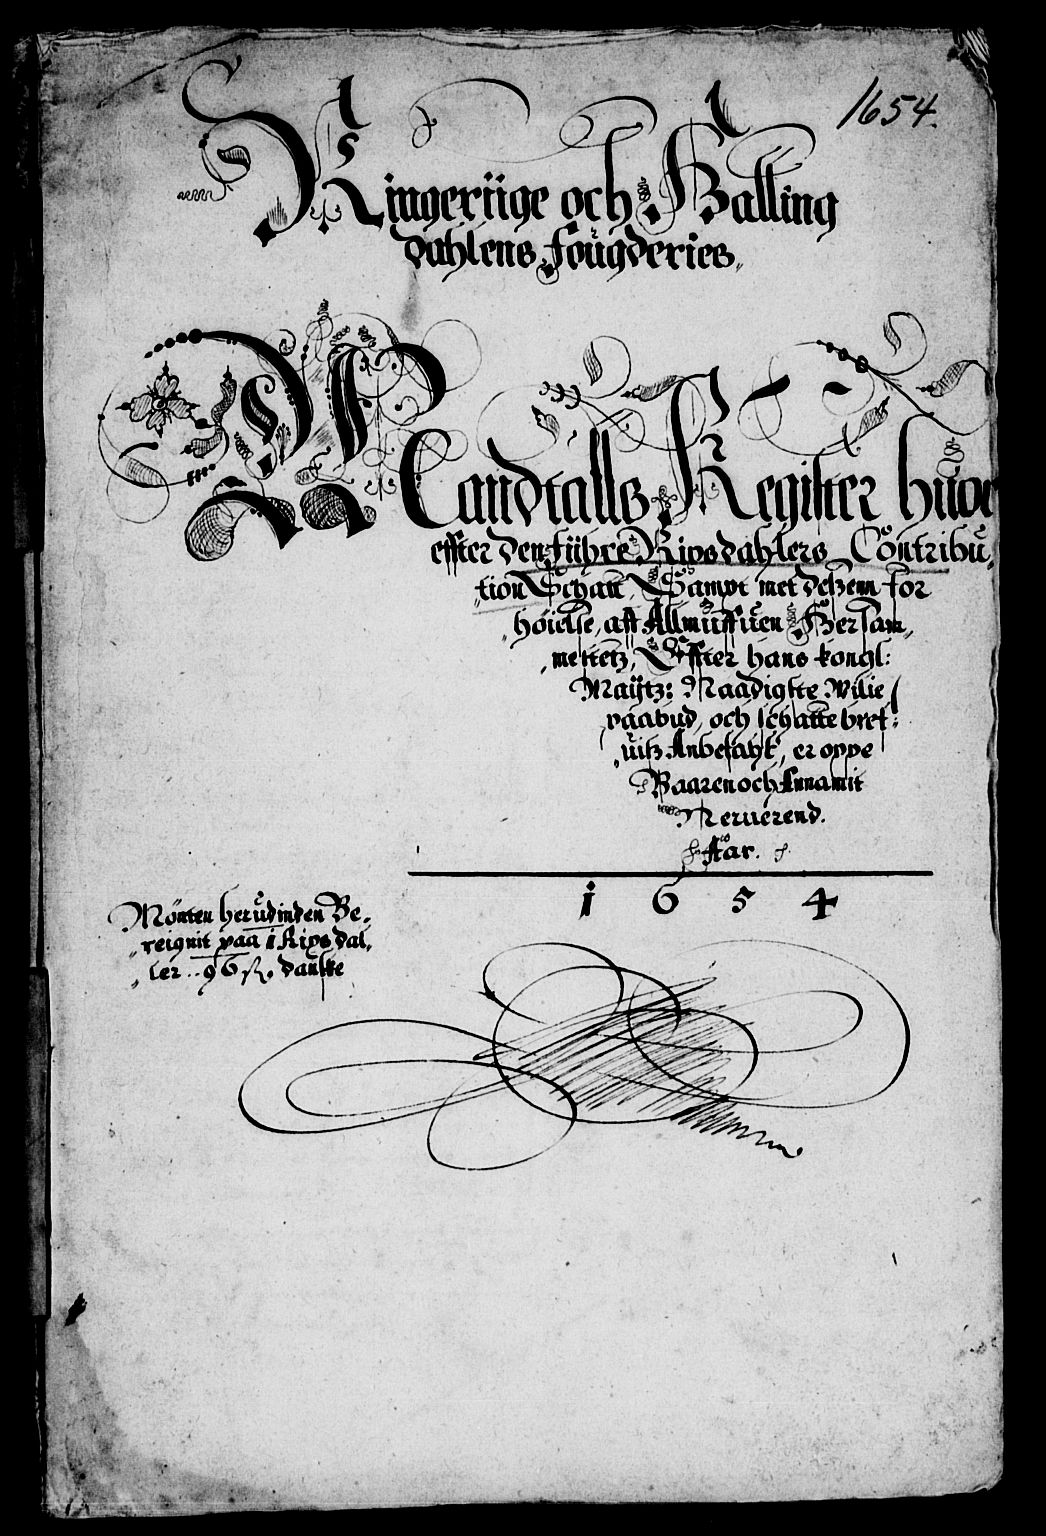 1654.
Ringeriige och Halling
dahlens fougderies.
Mandtalls Register huor
effter den fiihre Rixsdahlers Contribu,
tion Schatt, Sampt met deszem for
höielse, aff Allmuffuen Hersam,
mestetz, Effter hans kongl:
Maijtz: Naadigste Wilie
paabud, och schattebref:
uisz Anbefahl, er oppe
Baaren och Annamit
Neruerend.
Aar.
1654
Mönten herudinden Be,
reignit paa 1 Rixsdal,
ler .. 96 sk. danske